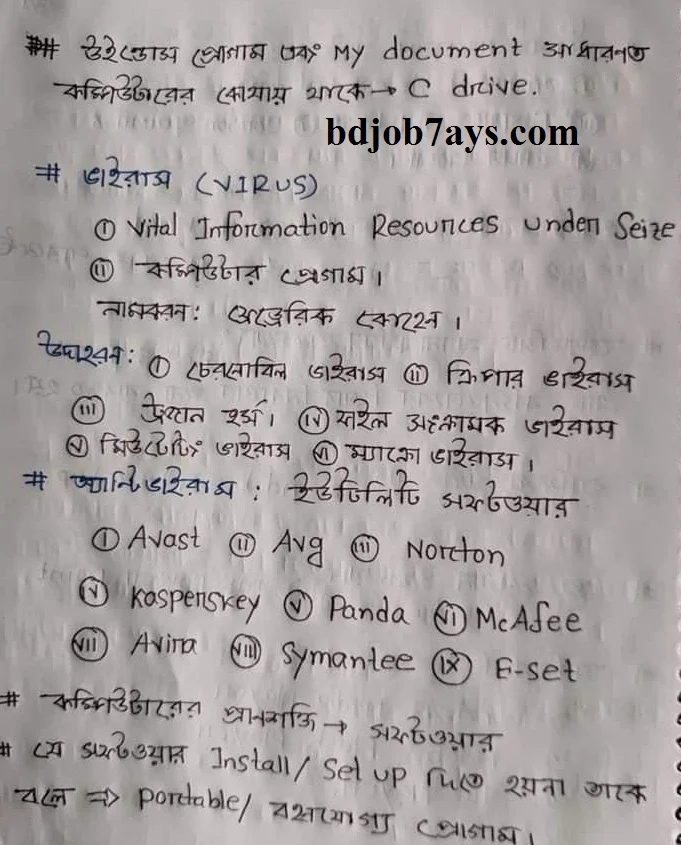 ## উইন্ডোস প্রোগ্রাম এবং My document সাধারনত
কম্পিউটারের কোথায় থাকে → C drive.
bdjob7ays.com
# ভাইরাস (VIRUS)
(i) Vital Information Resources under Seize
(ii) কম্পিউটার প্রোগ্রাম।
নামকরন: ফ্রেডরিক কোহেন।
উদাহরন: (i) চেরনোবিল ভাইরাস (ii) ক্রিপার ভাইরাস
(iii) ট্রোজান হর্স। (iv) ফাইল সংক্রামক ভাইরাস
(v) মিউটেটিং ভাইরাস (vi) ম্যাক্রো ভাইরাস।
# অ্যান্টিভাইরাস : ইউটিলিটি সফটওয়ার
(i) Avast (ii) Avg (iii) Norton
(v) Kasperskey (v) Panda (vi) McAfee
(vii) Avira (viii) Symantee (ix) E-set
# কম্পিউটারের প্রানশক্তি → সফটওয়ার
# যে সফটওয়ার Install/Set up দিতে হয়না তাকে
বলে => portable/ বহনযোগ্য প্রোগ্রাম।